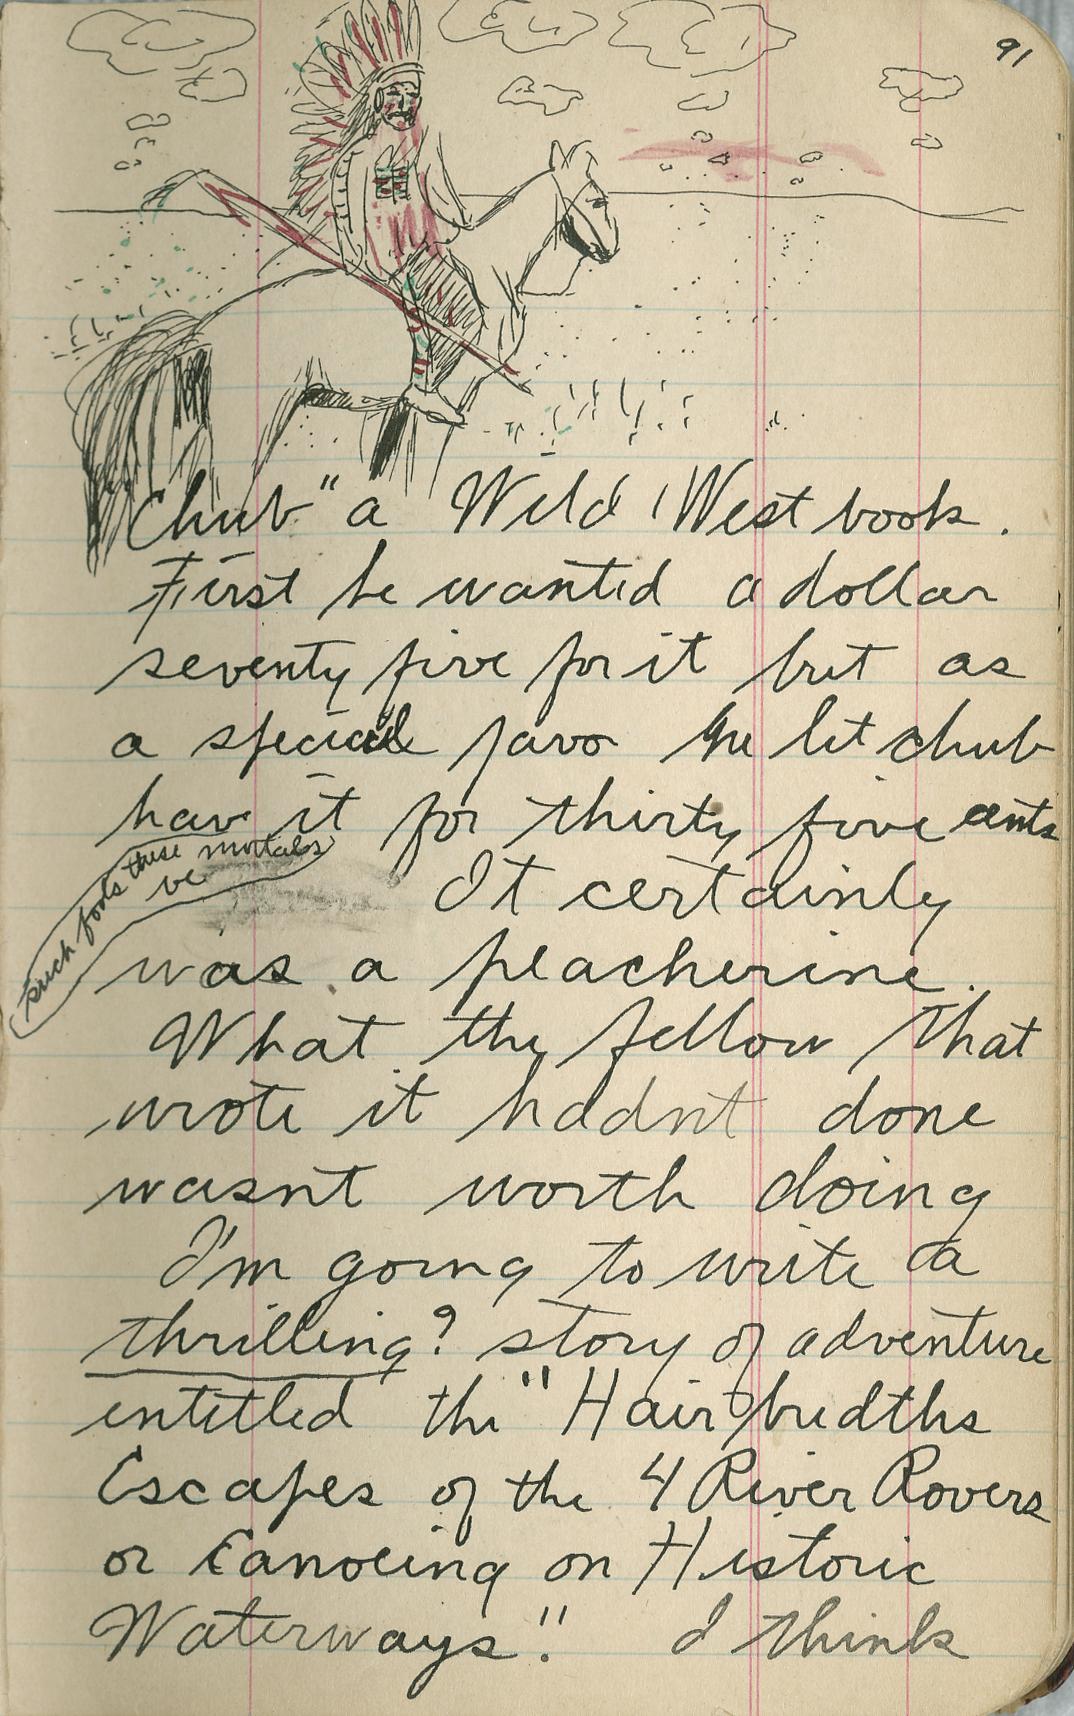 91
"Chub" a Wild West book.
First he wanted a dollar
seventy five for it but as
a special favo he let chub
have it for thirty five cents
such fools these mortals
be
It certainly
was a peacherine.
What the fellow that
wrote it hadnt done
wasnt worth doing
I'm going to write a
thrilling? story of adventure
entitled the "Hairbredths
Escapes of the 4 River Rovers
or Canoeing on Historic
Waterways." I think